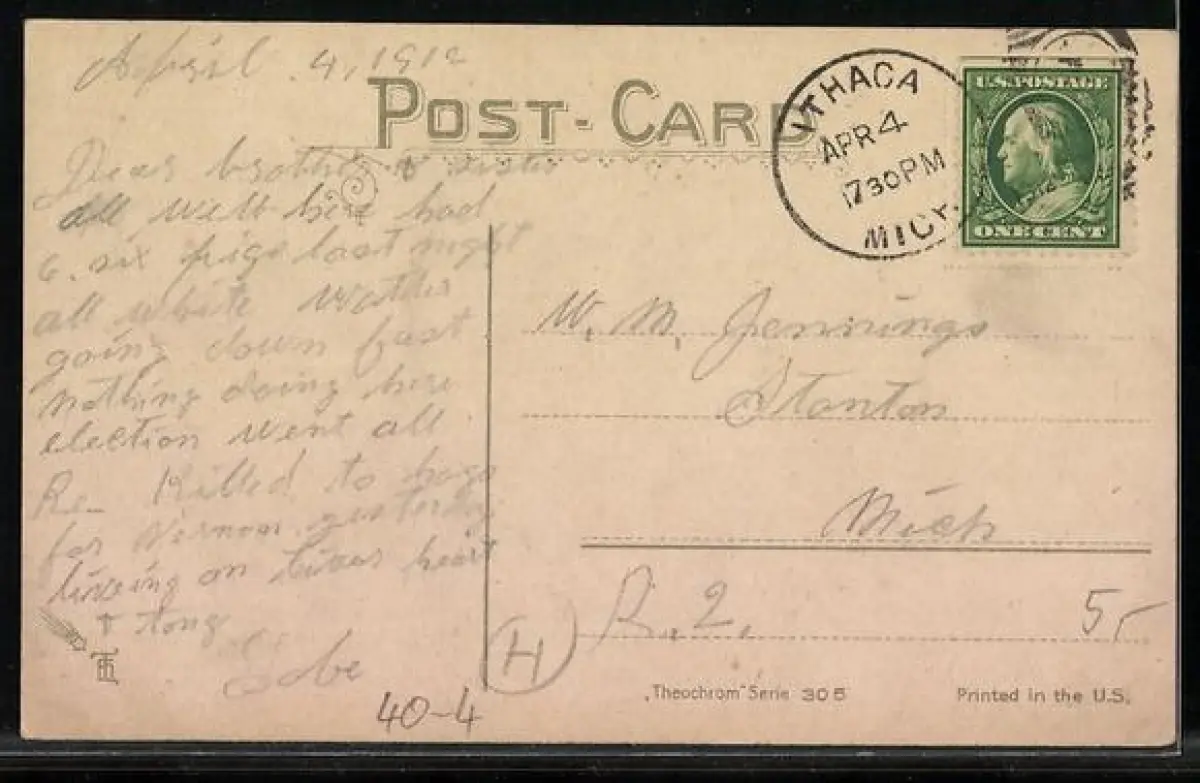 April 4, 1912
POST-CARD
ITHACA
APR 4
730PM
MICH.
U.S. POSTAGE
1912
ONE CENT
Dear brother & sister
all well here had
6. six pigs last night
all white
going down fast
nothing doing here
election went all
Re- Killed to hogs
for Vernon yesterday
liveing on liver heart
+ tong
W. M. Jennings
Stanton
Mich
R. 2.
5,-
H
40-4
„Theochrom" Serie 305
Printed in the U.S.